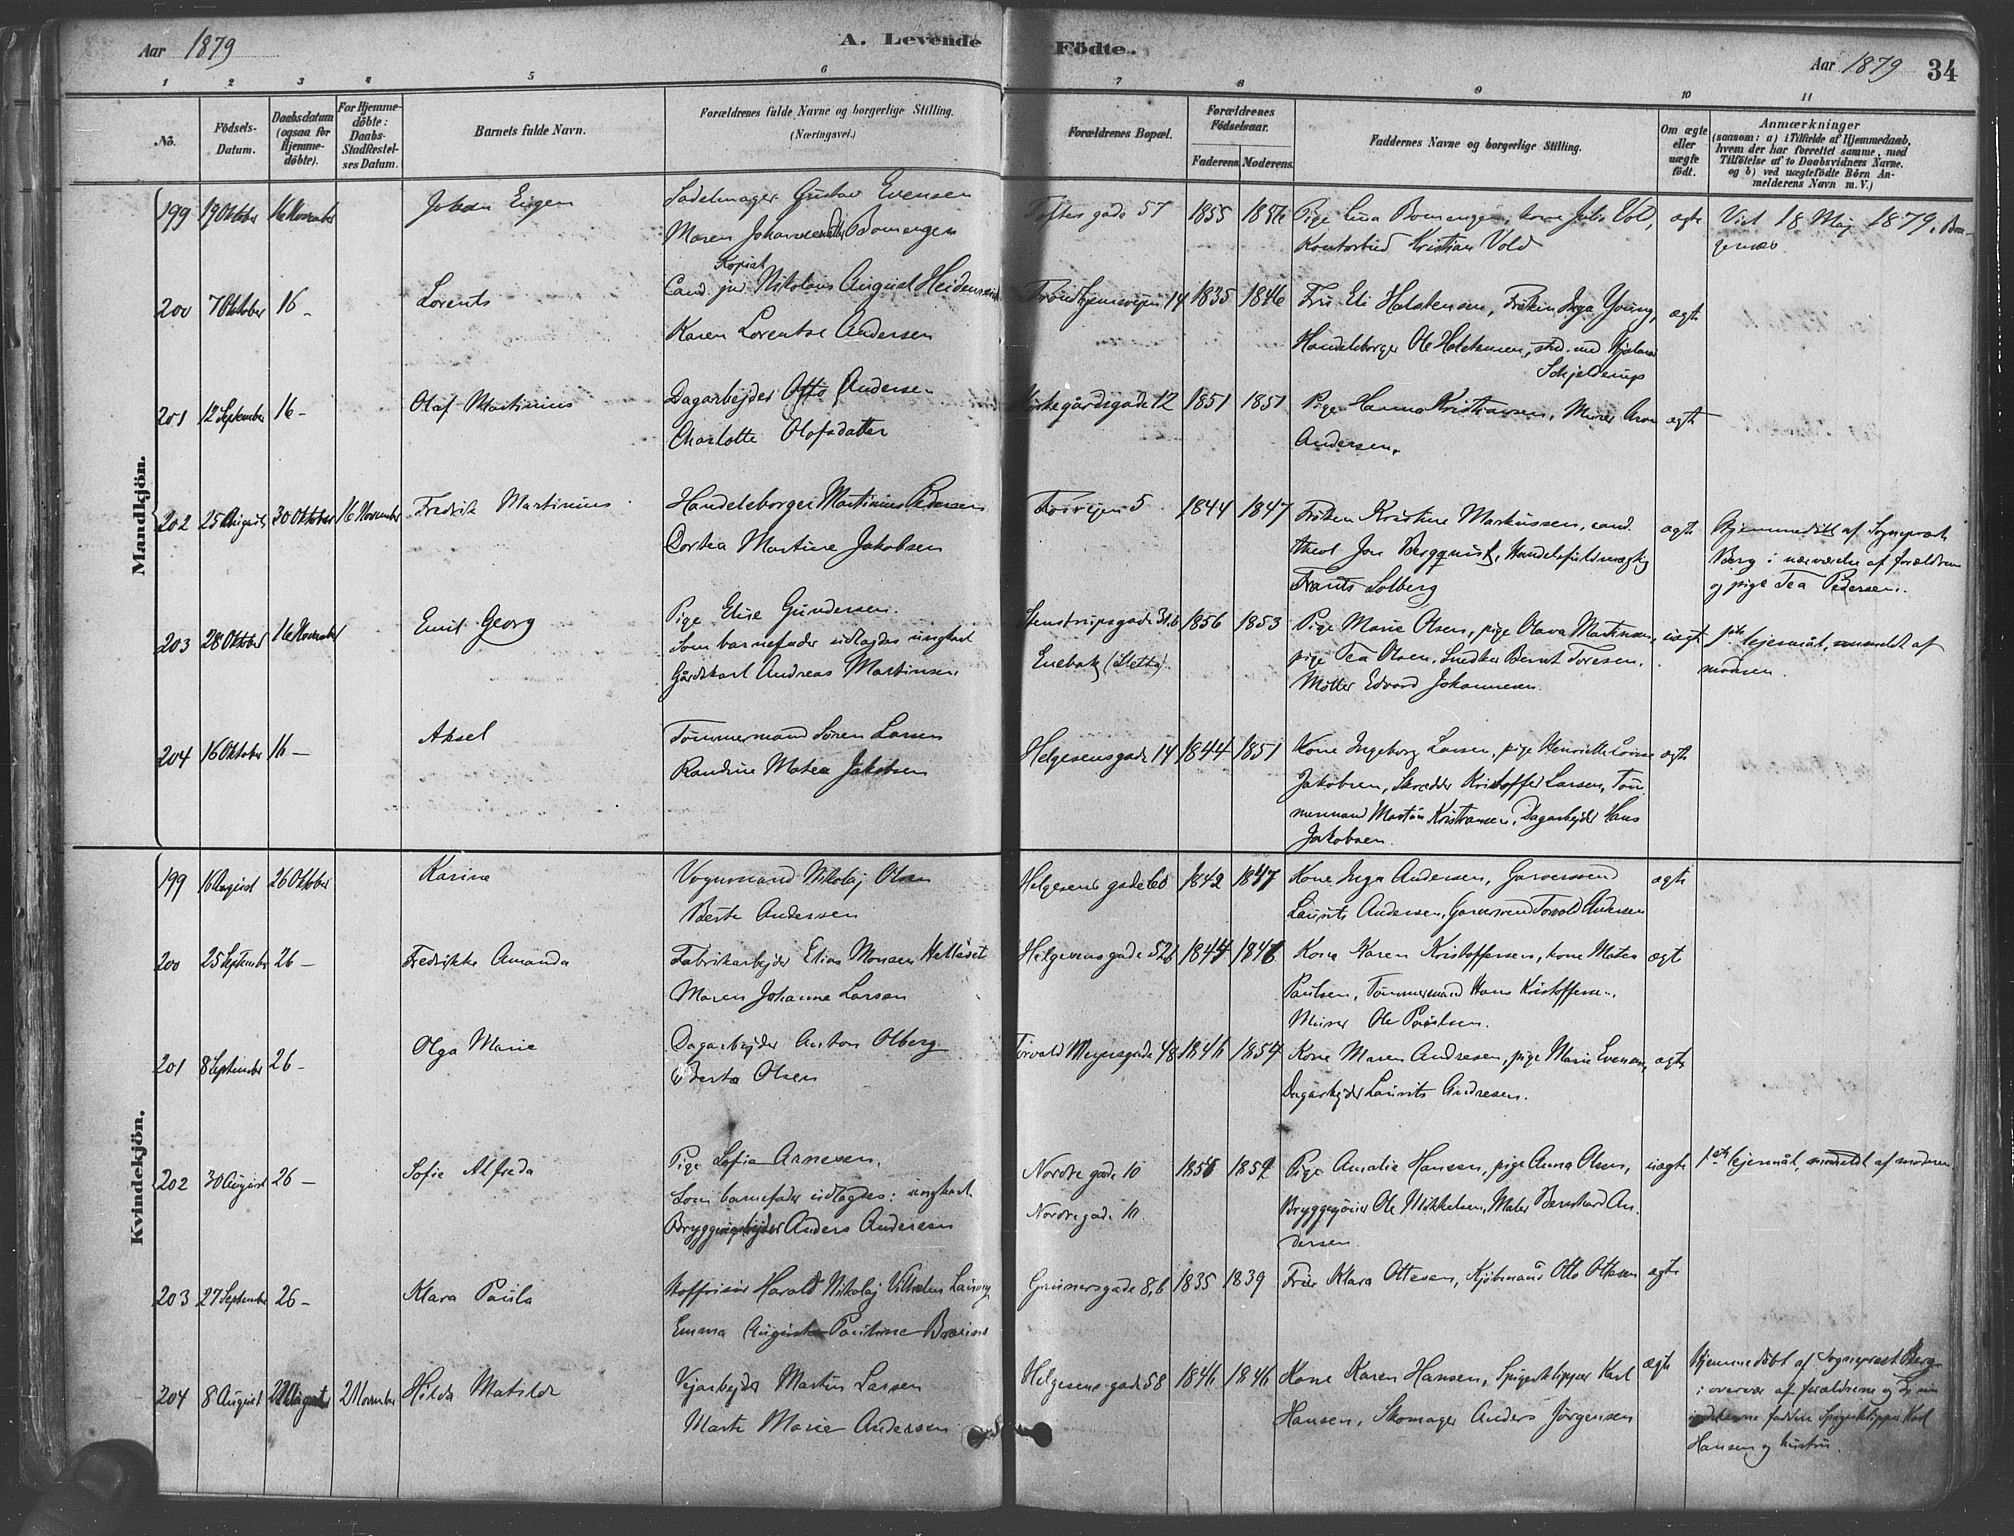 Aar 1879
A. Levende
Födte.
Aar 1879
34
1 2 3 4 5 6 7 8 9 10 11
No.
Födsels-
Datum.
Daabsdatum
(ogsaa for
Hjemme-
döbte).
For Hjemme-
döbte:
Daabs-
Stadfæstel-
ses Datum.
Barnets fulde Navn.
Forældrenes fulde Navne og borgerlige Stilling.
(Næringsvei.)
Forældrenes Bopæl.
Forældrenes
Födselsaar.
Faderens. Moderens.
Faddernes Navne og borgerlige Stilling.
Om ægte
eller
uægte
födt.
Anmærkninger
(saasom: a) i Tilfælde af Hjemmedaab,
hvem der har forrettet samme, med
Tilföielse af to Daabsvidners Navne.
og b) ved uægtefödte Börn An-
melderens Navn m. V.)
Mandkjön.
199 19 Oktober 16 November Johan Eugen
Sadelmager Gustav Evensen
Maren Johannesdtr Bomengen
Toftesgade 57 1855
Pige Lina Bomengen, kone Julie Vold,
Kontorbud Kristian Vold
ægte
Viet 18 Maj 1879.
200 7 Oktober 16 - Lorents
Kopist
Cand. jur Nikolaus August
Karen Lorentse Andersen
Trondhjemsvejen 14 1835 1846
Fru Eli Halstensen, Frøken Inga Young,
Handelsborger Ole Halstensen, stud. med
Schjelderup
ægte
201 12 September 16 - Olaf Martinius
Dagarbejder Otto Andersen
Charlotte Olofsdatter
Kirkegårdsgade 12 1851 1851
Pige Hanna Kristiansen, Murer
Andersen.
ægte
202 25 August 30 Oktober 16 November Fredrik Martinius
Handelsborger Martinius Pedersen
Dortea Martine Jakobsen
5 1844 1847
Frøken Kristine Markussen, cand.
theol Jon Bergquist, Handelsfuldmægtig
Frants Solberg
ægte
Hjemmedøbt af Sogneprest
Berg i nærværelse af forældrene
og pige Tea Pedersen.
203 28 Oktober 16 November Emil Georg
Pige Elise Gundersen.
Som barnefader udlagdes ungkarl
Gårdskarl Andreas Martinsen.
Stenstrupsgade 31b
Enebak (Sletta)
1856 1853
Pige Marie Olsen, pige Olava Martinsen,
pige Tea Olsen, Snedker Bernt Toresen,
Møller Edvard Johannesen.
uægte
1ste lejermål, anmeldt af
modren.
204 16 Oktober 16 - Aksel
Tømmermand Søren Larsen
Randine Matea Jakobsen
Helgesensgade 14 1844 1851
Kone Ingeborg Larsen, pige Henriette Lovise
Jakobsen, Skrædder Kristoffer Larsen, Tøm-
mermand Martin Kristiansen, Dagarbejder Hans
Jakobsen.
ægte
Kvindekjön.
199 16 August 26 Oktober Karine
Vognmand Nikolaj Olsen
Berte Andersen
Helgesens gade 60 1842 1847
Kone Inga Andersen, Garversvend
Laurits Andersen, Garversvend Torvald Andersen
ægte
200 25 September 26 - Fredrikke Amanda
Fabrikarbejder Elias Monsen
Maren Johanne Larsen
Helgesensgade 52b 1844
Kone Karen Kristoffersen, kone Matea
Paulsen, Tømmermand Hans Kristoffersen,
Murer Ole Paulsen.
ægte
201 8 September 26 - Olga Marie
Dagarbejder Anton Olberg
Berta Olsen
Torvald Meyersgade 48 1846 1854
Kone Maren Andresen, pige Marie Evensen,
Dagarbejder Laurits Andresen.
ægte
202 30 August 26 - Sofie Alfreda
Pige Sofie Arnesen,
Som barnefader udlagdes: ungkarl
Bryggeriarbejder Anders Andersen
Nordregade 10
Nordregade 10.
Pige Amalie Hansen, pige Anna Olsen,
Ole Mikkelsen, Maler Bernhard An-
dersen
uægte
1ste lejermål, anmeldt af modren
203 27 September 26 - Klara Paula
Harald Nikolaj Vilhelm
Emma Augusta Pauline
Grünersgade 8,b 1835 1839
Frue Klara Ottesen, Kjøbmand Otto Ottesen
ægte
204 8 August 2 November Hilda Matilde
Vejarbejder Martin Larsen
Marte Marie Andersen
Helgesensgade 58 1846 1846
Kone Karen Hansen, Spigerklipper Karl
Hansen, Skomager Anders Jørgensen
ægte
Hjemmedøbt af Sogneprest Berg
i overvær af forældrene og
faddere Spigerklipper Karl
Hansen og hustru.